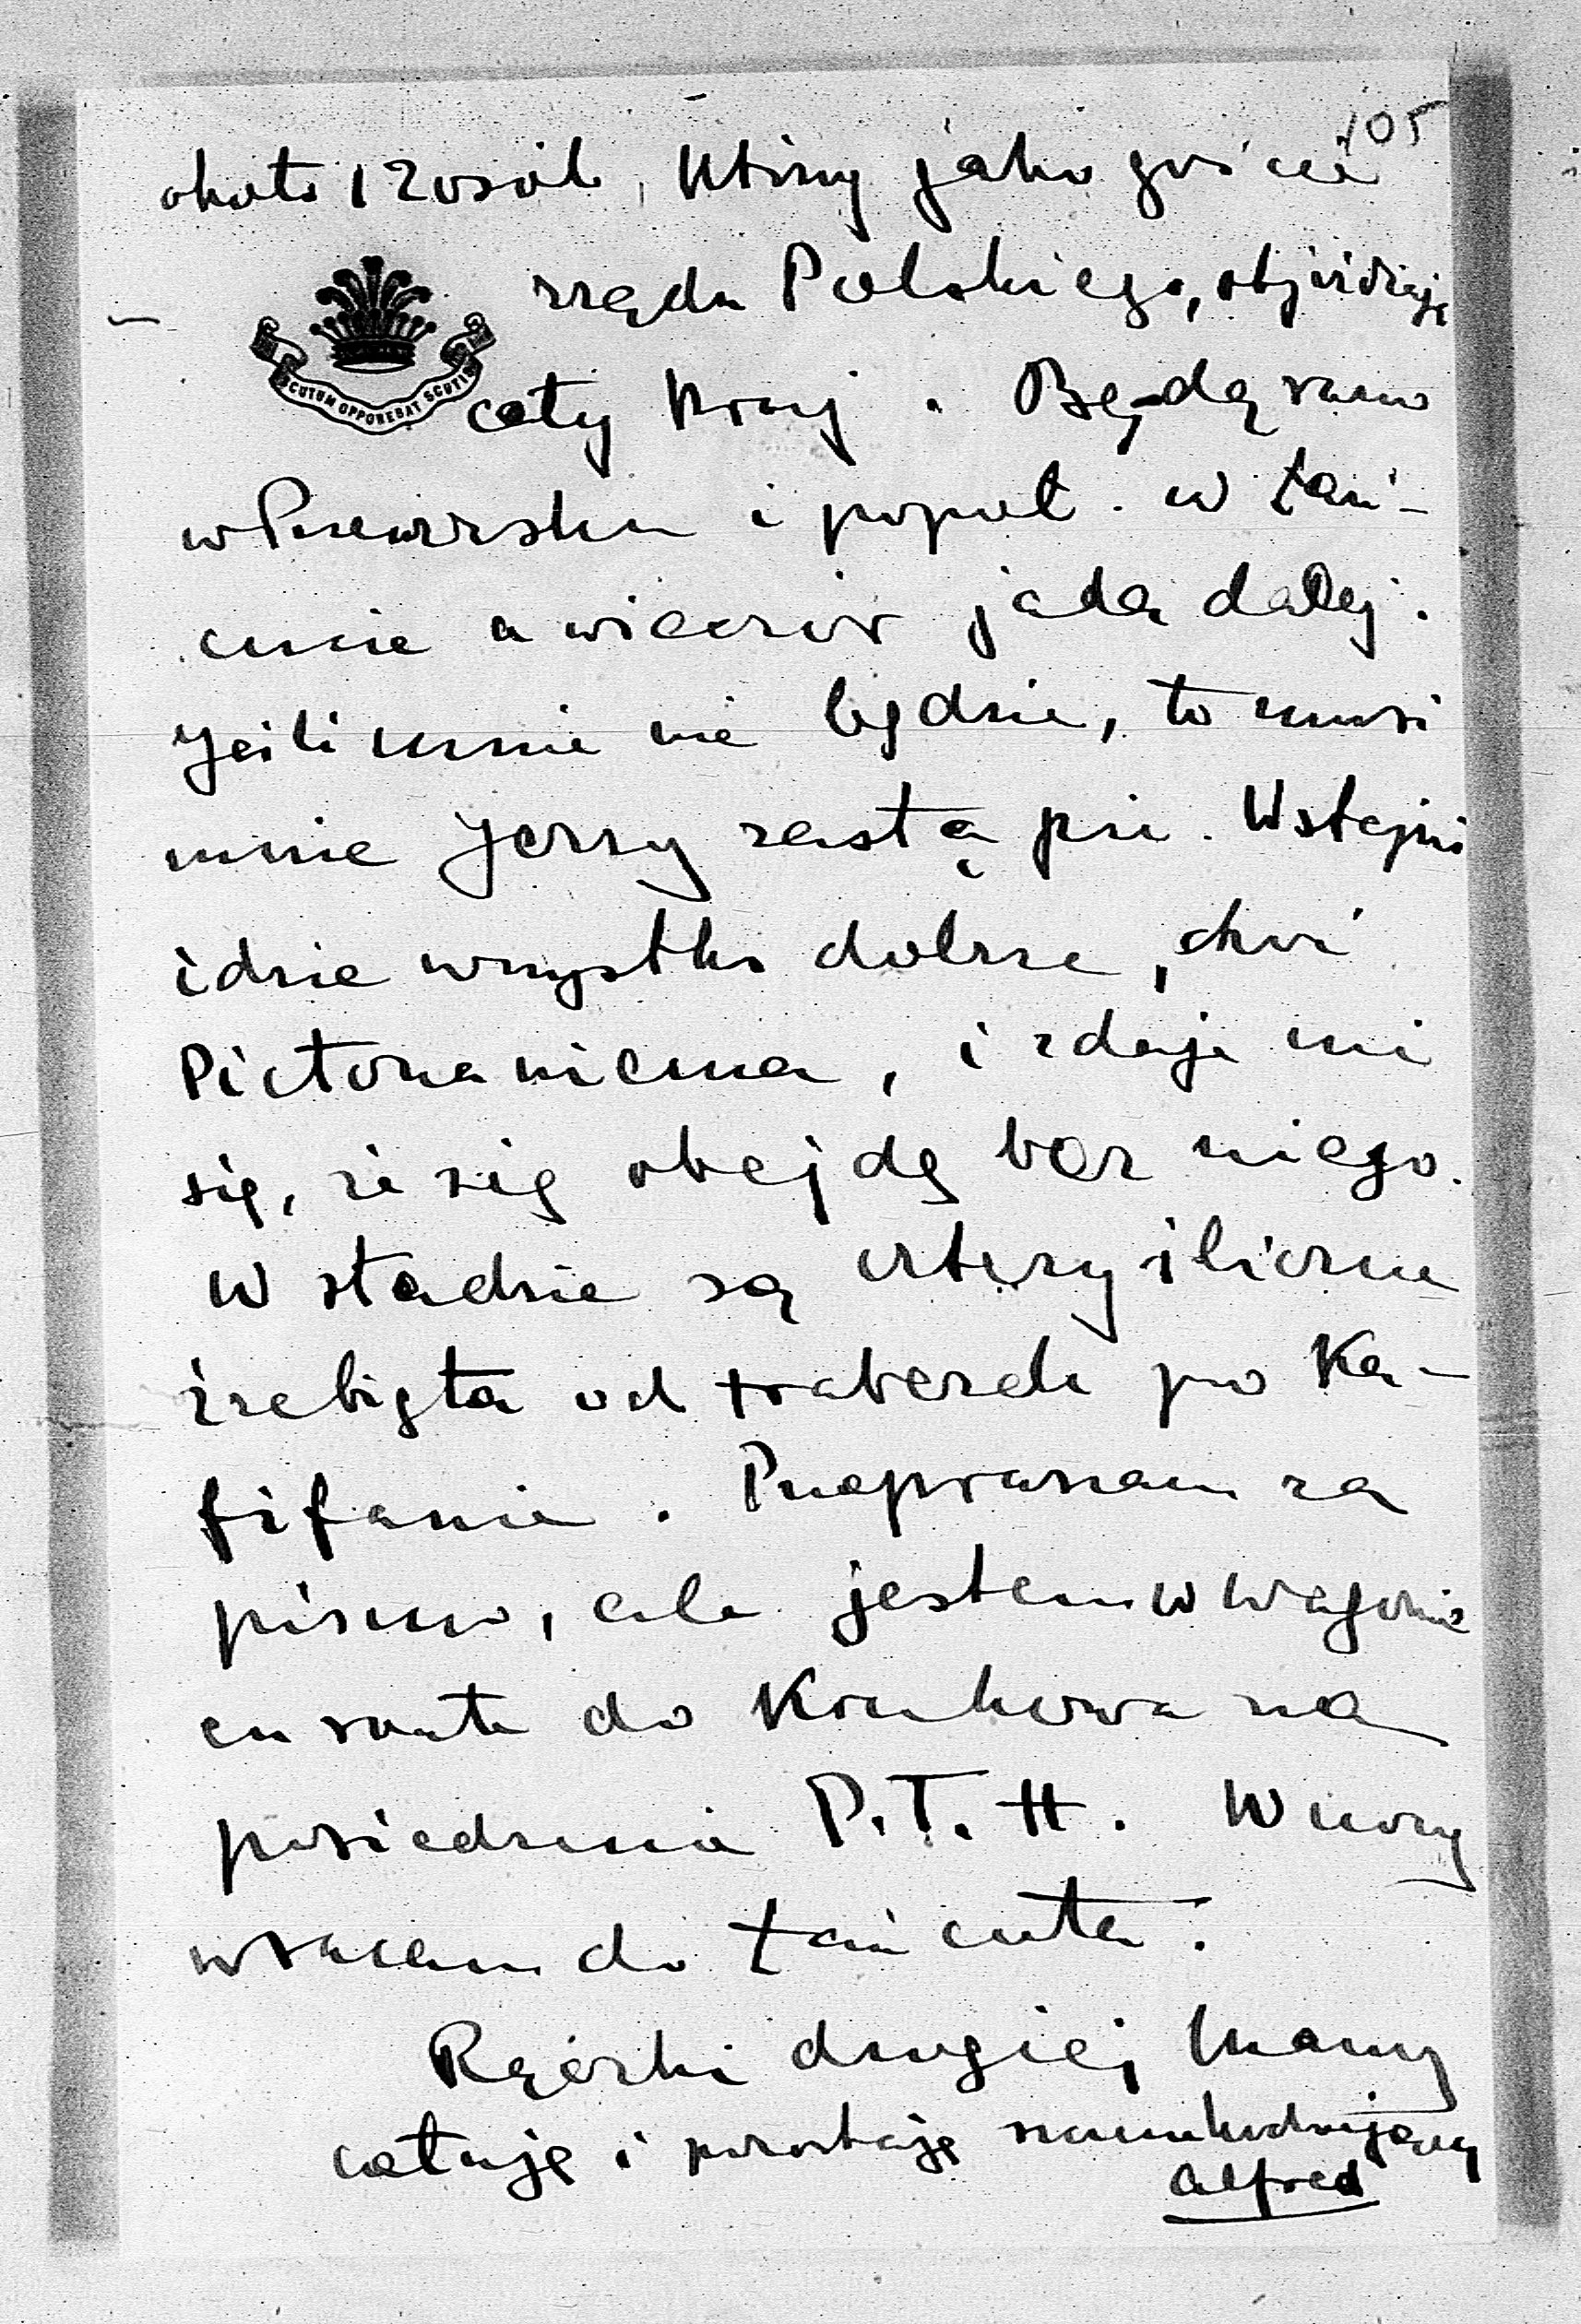 105
około 120 osób, którzy jako goście
rządu Polskiego, objeżdżają
SCUTUM OPPONEBAT SCUTIS
cały kraj. Będą rano
w Przeworsku i popoł. w Łań-
cucie a wieczór jadą dalej.
Jeśli mnie nie będzie, to musi
mnie Jerzy zastąpić. W stajni
idzie wszystko dobrze, choć
Pictona niema, i zdaje mi
się, że się obejdę bez niego.
W stadzie są cztery śliczne
źrebięta od traberek po Ka-
fifanie. Przepraszam za
pismo, ale jestem w wagonie
en route do Krakowa na
posiedzenie P.T.H. W nocy
wracam do Łańcuta.
Rączki drogiej Mamy
całuję i pozostaję
Alfred